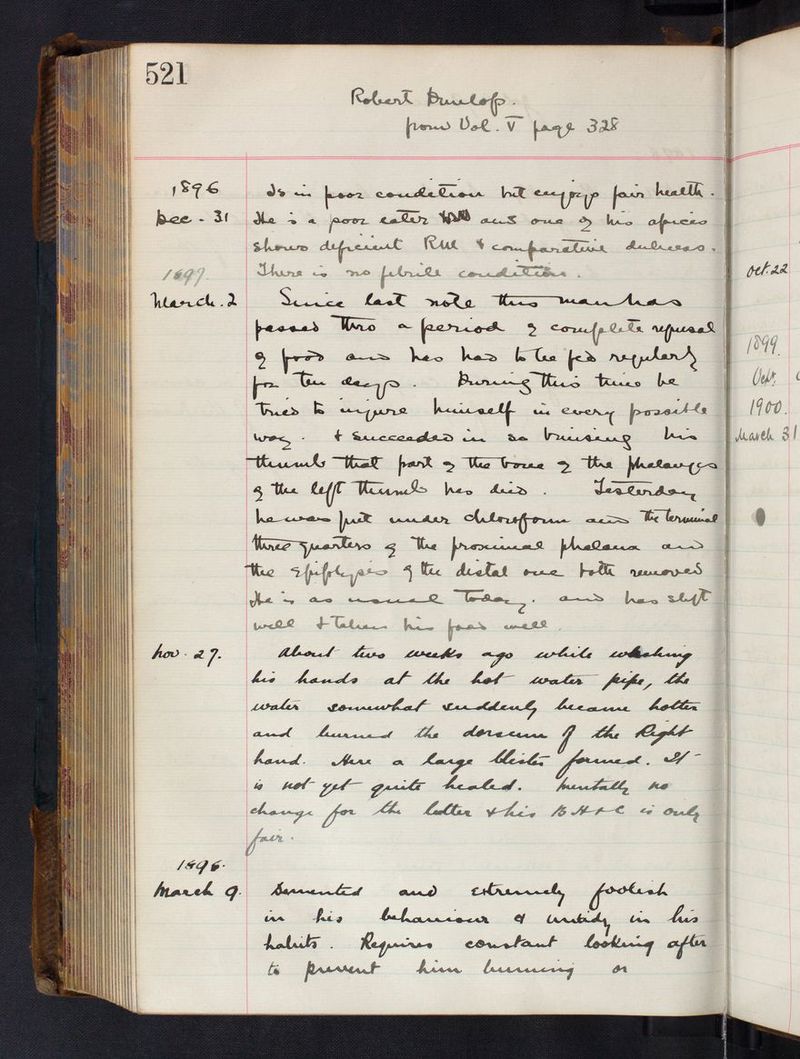 521
Robert Dunlop.
from Vol. V page 328
1896
Dec - 31 Is in poor condition but enjoys fair health.
He is a poor eater and one of his apices
shows deficient RM & comparative dulness.
1897. There is no febrile condition.
March. 2 Since last note this man has
passed thro a period of complete refusal
of food and has had to be fed regularly
for ten days. During this time he
tried to injure himself in every possible
way. & succeeded in so bruising his
thumb that part of the bone of the phalanges
of the left thumb has died. Yesterday
he was put under chloroform and the terminal
three quarters of the proximal phalanx and
the epiphysis of the distal one both removed
He is as usual today. and has slept
well & taken his food well.
Nov. 27. About two weeks ago while washing
his hands at the hot water pipe, the
water somewhat suddenly became hotter
and burned the dorsum of the Right
hand. Here a large blister formed. It
is not yet quite healed. Mentally no
change for the better & his B H & C is only
fair.
1896.
March 9. Demented and extremely foolish
in his behaviour & untidy in his
habits. Requires constant looking after
to prevent him burning or
Oct. 22
1899.
Oct.
1900.
March 31